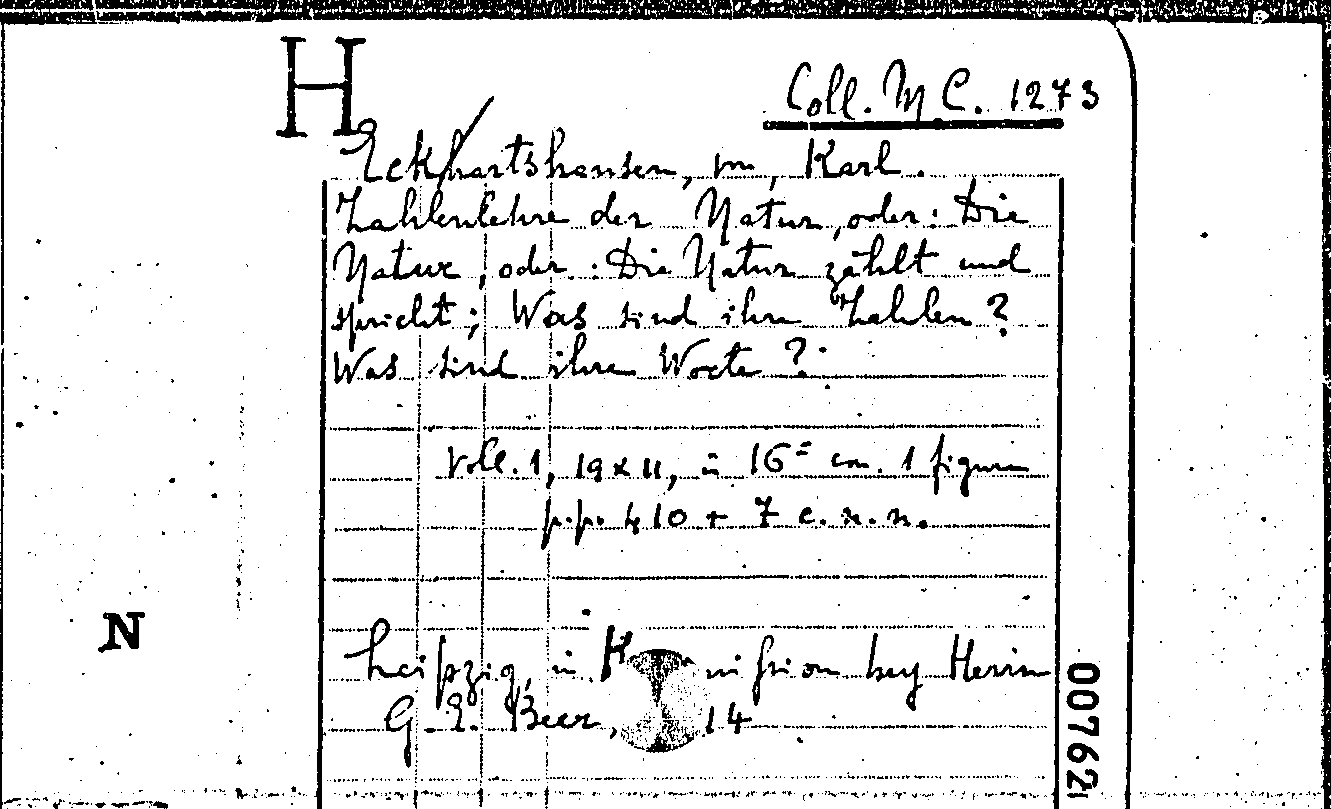 H
Coll. M. C. 1273
Eckhartshausen, von, Karl.
Zahlenlehre der Natur, oder: Die
Natur, oder: Die Natur zählt und
spricht; Was sind ihre Zahlen?
Was sind ihre Worte?
Voll. 1, 19x11, in 16= con 1 figura
p.p. 410 + 7 c. n. n.
N
Leipzig, in bey Herrn
G. E. Beer, 14
00762